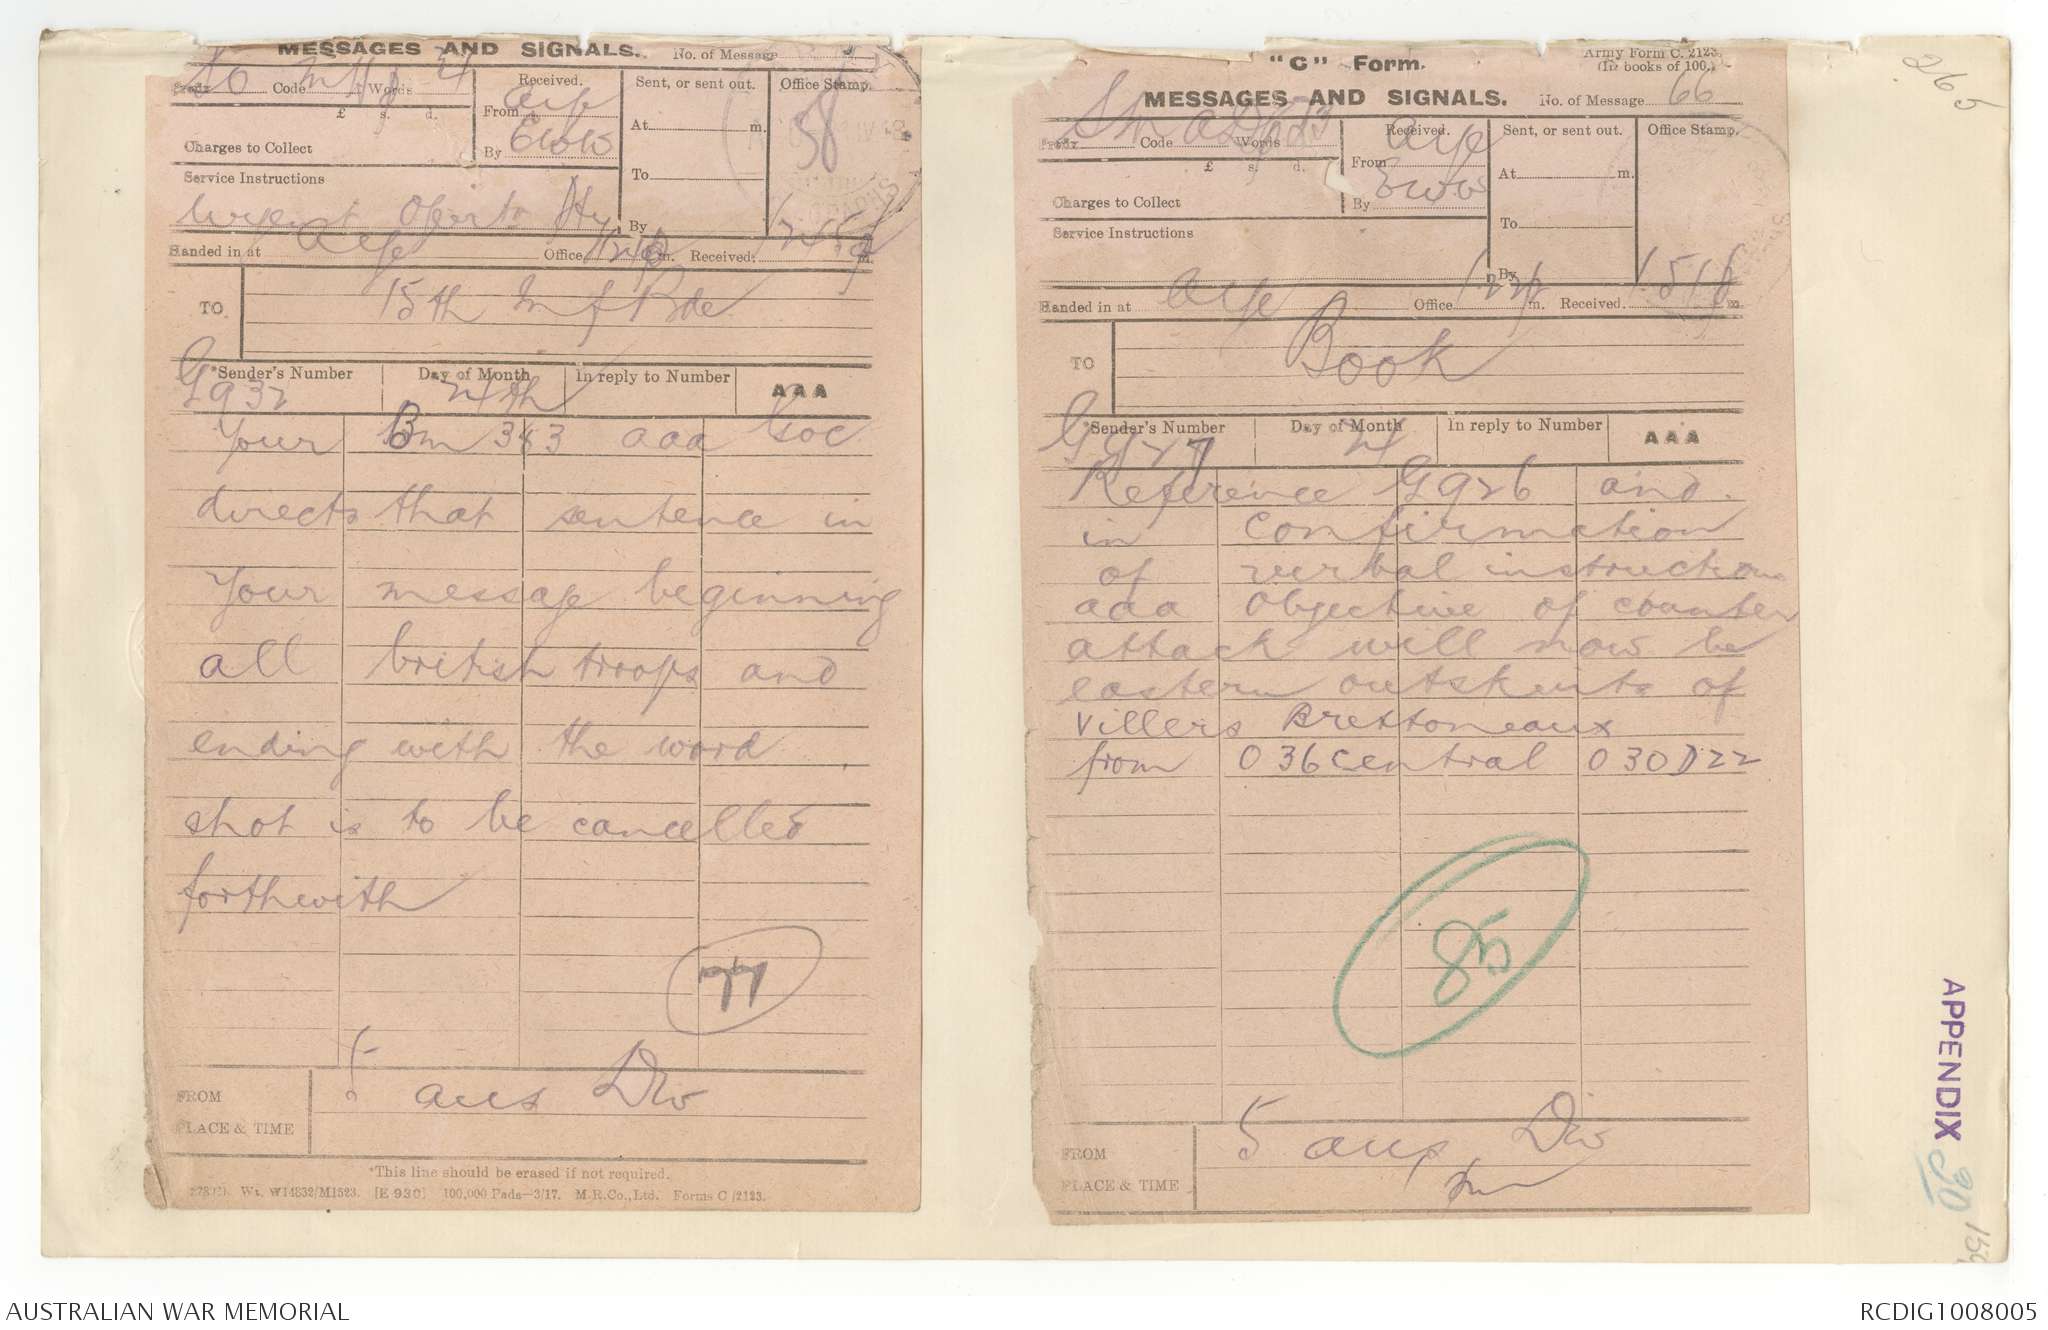 MESSAGES AND SIGNALS. No. of Message
Code Words
£ s. d.
Charges to Collect
Service Instructions
Urgent Oper to
Received.
From
By
Sent, or sent out.
At m.
To
By
Office Stamp.
58
Handed in at Office m. Received: m.
TO 15th Inf Bde
*Sender's Number Day of Month In reply to Number AAA
G932 24th
Your Bm 343 aaa Goc
directs that sentence in
Your message beginning
all british troops and
ending with the word
shot is to be cancelled
forthwith
77
FROM 5 aus Div
PLACE & TIME
*This line should be erased if not required.
Wt. W14832/M1523. [E 930] 100,000 Pads—3/17. M.R.Co., Ltd. Forms C/2123.
"C" Form. Army Form C. 2123.
(In books of 100.)
MESSAGES AND SIGNALS. No. of Message 66
Code Words
£ s. d.
Charges to Collect
Service Instructions
Received.
From
By
Sent, or sent out.
At m.
To
By
Office Stamp.
Handed in at Office m. Received. m.
TO Book
*Sender's Number Day of Month In reply to Number AAA
G927 24
Reference G926 and
in confirmation
of verbal instructions
aaa Objective of counter
attack will now be
eastern outskirts of
Villers Brettoneaux
from O 36 central O 30 D 22
85
FROM 5 aus Div
PLACE & TIME
265
APPENDIX 30
AUSTRALIAN WAR MEMORIAL
RCDIG1008005